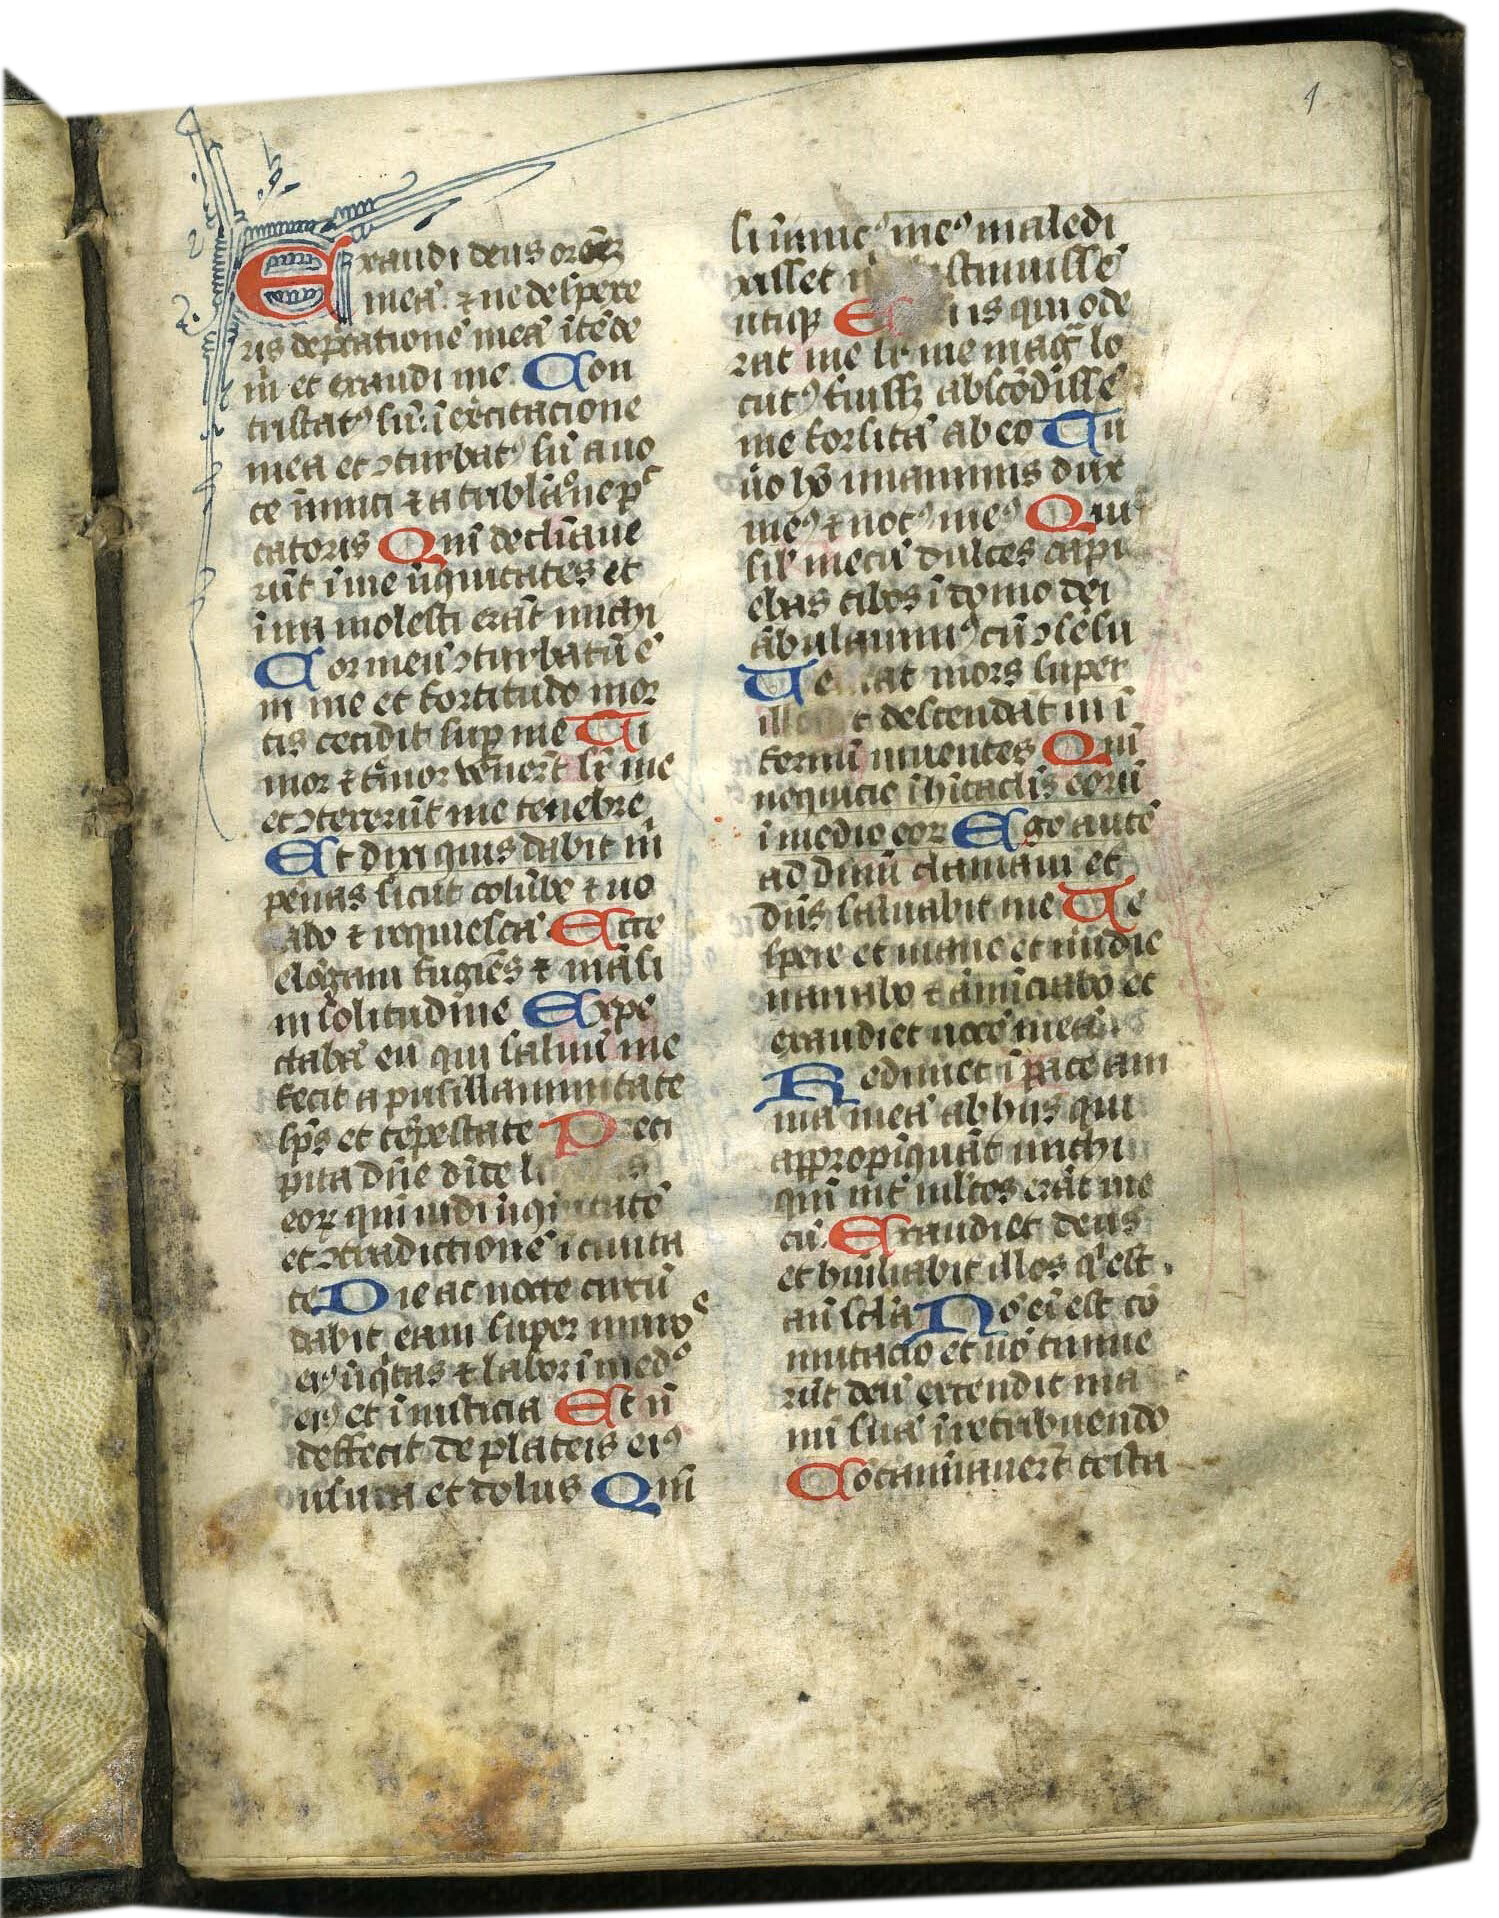 1
Exaudi deus orōeꝫ
meā ⁊ ne despexe
ris dep̄cationē meā ītēde
m̄ et exaudi me Con
tristatꝰ sū ī ex̄citacione
mea et ꝯturbatꝰ sū a uo
ce inimici ⁊ a tribl̄aōne pc̄
catoris Qm̄ declīaue
rūt ī me iniquitates et
ī ira molesti erāt michi
Cor meū ꝯturbatū ē
in me et fortitudo mor
tis cecidit suꝑ me Ti
mor ⁊ t̄mor ven̄er̄t sr̄ me
et ꝯtexerūt me tenebre
Et dixi quis dabit m̄
pēnas sicut colūbe ⁊ uo
labo ⁊ requiescā Ecce
elōgaui fugiēs ⁊ māsi
in solitudine Expe
ctabā eū qui saluū me
fecit a pusillanimitate
sp̄s et tēpestate Preci
pita dn̄e diuide
eoꝝ qm̄ uidi iniquitatē
et ꝯtradictionē ī ciuita
te Die ac nocte circū
dabit eam super muros
eiꝰ iniq̄tas ⁊ labor ī medo
eiꝰ et ī iusticia Et nō
deffecit de plateis eiꝰ
usura et dolus Qm̄
si inimicꝰ meꝰ maledi
xisset sustinuissē
utiqꝫ Et is qui ode
rat me sr̄ me maḡ lo
cutꝰ fuissꝫ abscōdissē
me forsitā ab eo Tu
ūo hō unanimis dux
meꝰ ⁊ notꝰ meꝰ Qui
sil̄ mecū dulces capi
ebas cibos ī domo dei
ābulauimꝰ cū ꝯsēsu
Veniat mors super
illos et descendāt in ī
fernū uiuentes Qm̄
nequicie ī hītaclis eorū
ī medio eoꝝ Ego autē
ad dn̄m clamaui et
dn̄s saluabit me Ve
spere et mane et m̄idie
narrabo ⁊ ānūciabo et
exaudiet uocē meā
Redimet ī pace am
ma meā ab hiis qui
appropīquāt michi
qm̄ int̄ ml̄tos erāt me
cū Exaudiet deus
et hūiliabit illos q̄ est
an̄ scl̄a Nō ei est cō
mutacio et nō timue
rūt deū extendit ma
nū suā ī retribuendo
Cōtaminauer̄t testa